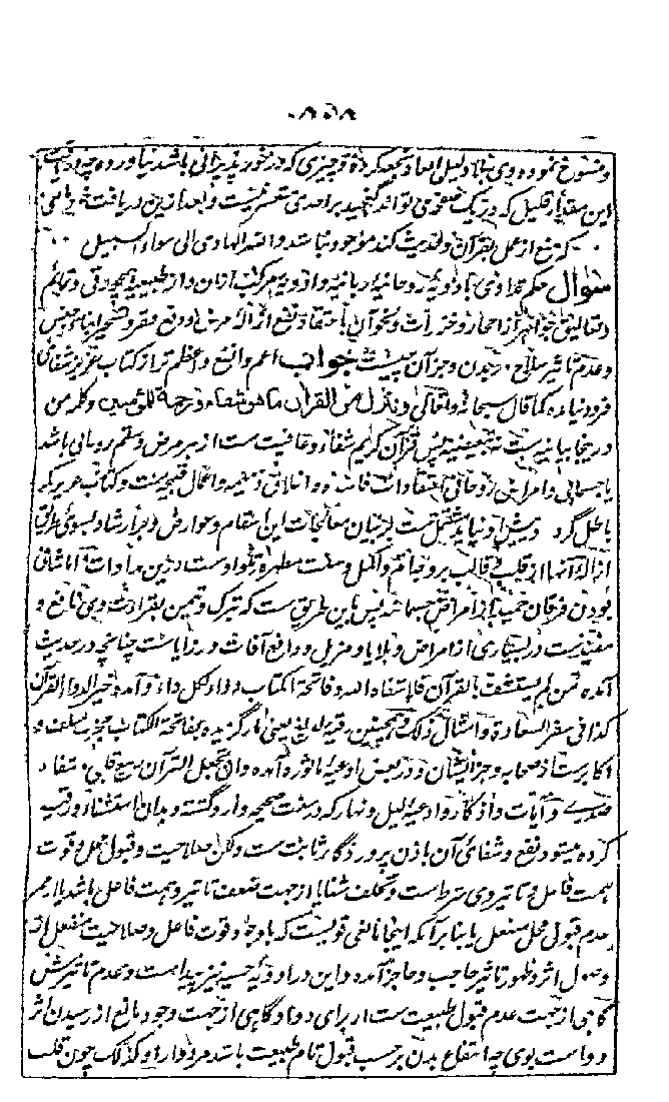 و منسوخ نموده وی بنا دلیل العاد جمع کرده و چیزی که در خور پذیرائی باشد نیاورده چه
این مقدار قلیل که در یک صفحه می تواند گنجید بر احدی متعسر نیست و بعد ازین دریافت
که منع از عمل بقرآن و حدیث کند موجود نباشد والله الهادی الی سواء السبیل
سوال حکم تداوی بادویه روحانیه ربانیه و ادویه مرکب ازان و از طبیعیه همچو رقی و تمائم
و تعالیق خواهر از احجار و نحو آن باعتقاد نفع ازاله مرض و دفع فقر و تسخیر ابنای جنس
و عدم تاثیر سلاح و جز آن چیست جواب اعم و انفع و اعظم تر از کتاب عزیز شفائی
فرود نیامده کما قال سبحانه وتعالی وننزل من القرآن ما هو شفاء ورحمة للمؤمنین وکلمه من
درینجا بیانیه است نه تبعیضیه پس قرآن کریم شفاء و عافیت ست از هر مرض و سقم روحانی باشد
یا جسمانی و امراض روحانی اعتقادات فاسده و اخلاق ذمیمه و اعمال قبیحه ست و کتاب عزیز که
باطل گرد و پیش او نیاید مشتمل ست بر بیان معالجات این اسقام و عوارض و ارشاد بسوی طرق
ازاله آنها از قلب و قالب بر وجه اتم و اکمل و سنت مطهره تلو اوست درین مرادات اما شافی
بودن فرقان حمید از امراض جسمانیه پس باین طریق ست که تبرک و تیمن بقراءت وی نافع و
مفید ست در بسیاری از امراض و بلایا و مزیل و دافع آفات و رزایا ست چنانچه در حدیث
آمده من لم یستشف بالقرآن فلا شفاه الله و فاتحة الکتاب دواء لکل داء و آمده خیر الدواء القرآن
کذا فی سفر السعادة و امثال ذلک و همچنین رقیه لدیغ یعنی مار گزیده بفاتحة الکتاب مجرب سلف و
اکابر ست از صحابه و جز ایشان و در بعض ادعیه ماثوره آمده و ان تجعل القرآن ربیع قلبی و شفاء
صدری و آیات و اذکار و ادعیه لیل و نهار که در سنت صحیحه وارد گشته و بدان استشفاء و رقیه
کرده میشود نفع و شفای آن باذن پروردگار ثابت ست ولکن صلاحیت و قبول محل و قوت
همت فاعل و تاثیر وی شرط است و تخلف شفا یا از جهت ضعف تاثیر و همت فاعل باشد یا بهر
عدم قبول محل منفعل یا بنا بر آنکه اینجا مانعی قویست که با وجود قوت فاعل و صلاحیت منفعل از
وصول اثر و ظهور تاثیر حاجب و حاجز آمده و این در ادویه حسیه نیز پیداست و عدم تاثیرش
گاهی از جهت عدم قبول طبیعت ست از برای دوا و گاهی از جهت وجود مانع از رسیدن اثر
دوا ست بوی چه انتفاع بدن بر حسب قبول تام طبیعت باشد مر دوا را و کذلک چون قلب